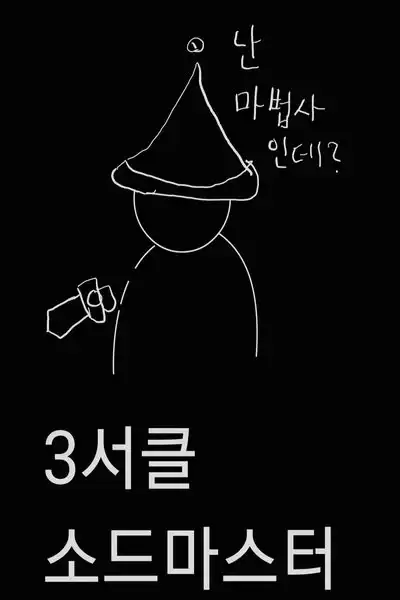 난
마법사
인데?
3서클
소드마스터